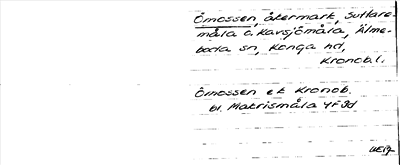 Ömossen, åkermark, Suttare-
måla o. Kavsjömåla, Älme-
boda sn, Konga hd,
Kronob.l.
Ömossen ek Kronob.
bl. Makrismåla 4F9d